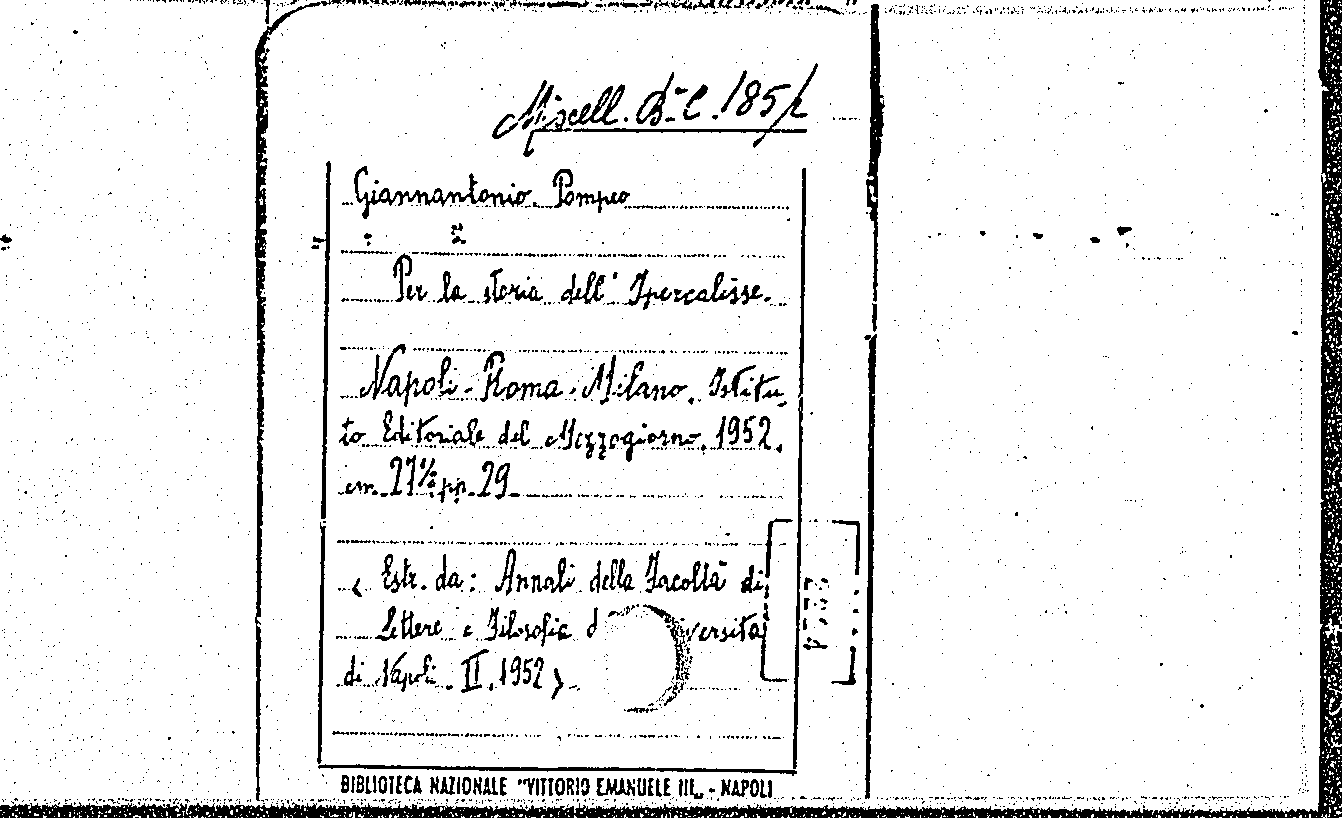 Miscell. B-C. 185/
Giannantonio. Pompeo
Per la storia dell' Ipercalisse.
Napoli - Roma - Milano. Istitu-
to Editoriale del Mezzogiorno. 1952.
cm. 27½ pp. 29
< Estr. da: Annali della Facoltà di
Lettere e Filosofia d versità
di Napoli. II. 1952 >
BIBLIOTECA NAZIONALE "VITTORIO EMANUELE III„ - NAPOLI